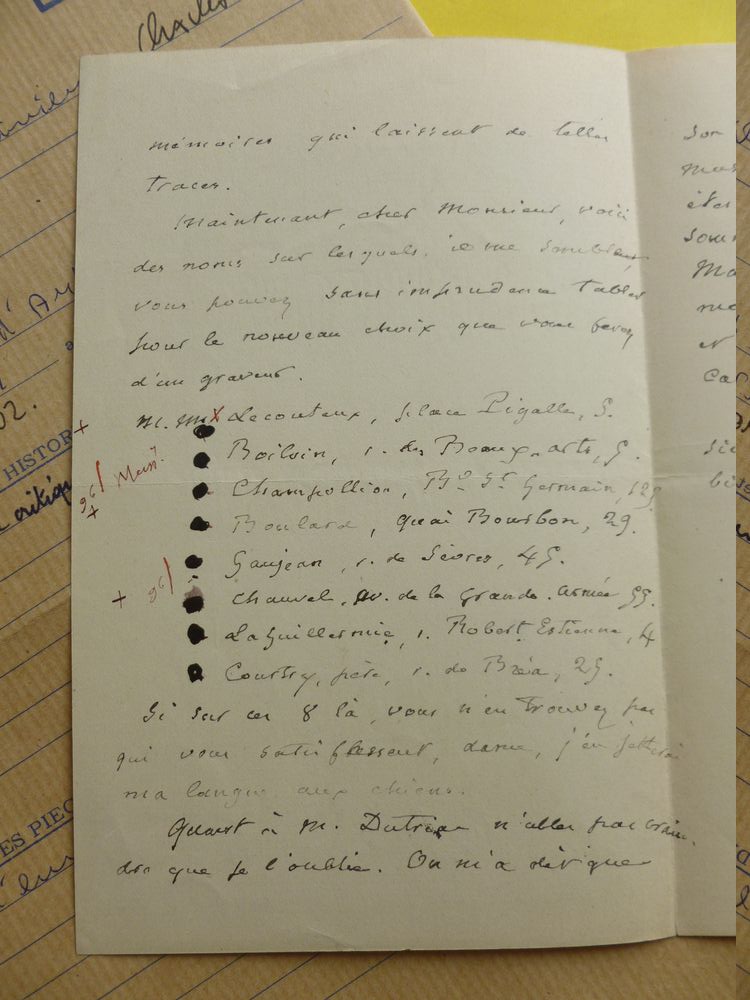 Charles
mémoires qui laissent de telles
traces.
Maintenant, cher Monsieur, voici
des noms sur lesquels, il me semble,
vous pouvez sans imprudence tabler
pour le nouveau choix que vous ferez
d'un graveur.
M.M. Lecouteux, place Pigalle, 5.
Boilvin, r. des Beaux-arts, 5.
Champollion, Bd St Germain,
Boulard, quai Bourbon, 29.
Gaujean, r. de Sèvres, 45.
Chauvel, av. de la Grande Armée 55.
Laguillermie, r. Robert Estienne, 4
Courtry, père, r. de Bréa, 25.
Si sur ces 8 là, vous n'en trouvez pas
qui vous satisfassent, dame, j'en jetterai
ma langue aux chiens.
Quant à M. n'allez pas crain-
dre que je l'oublie. On m'a dit que
son
HISTOR
critiqu
ES PIEC
02.